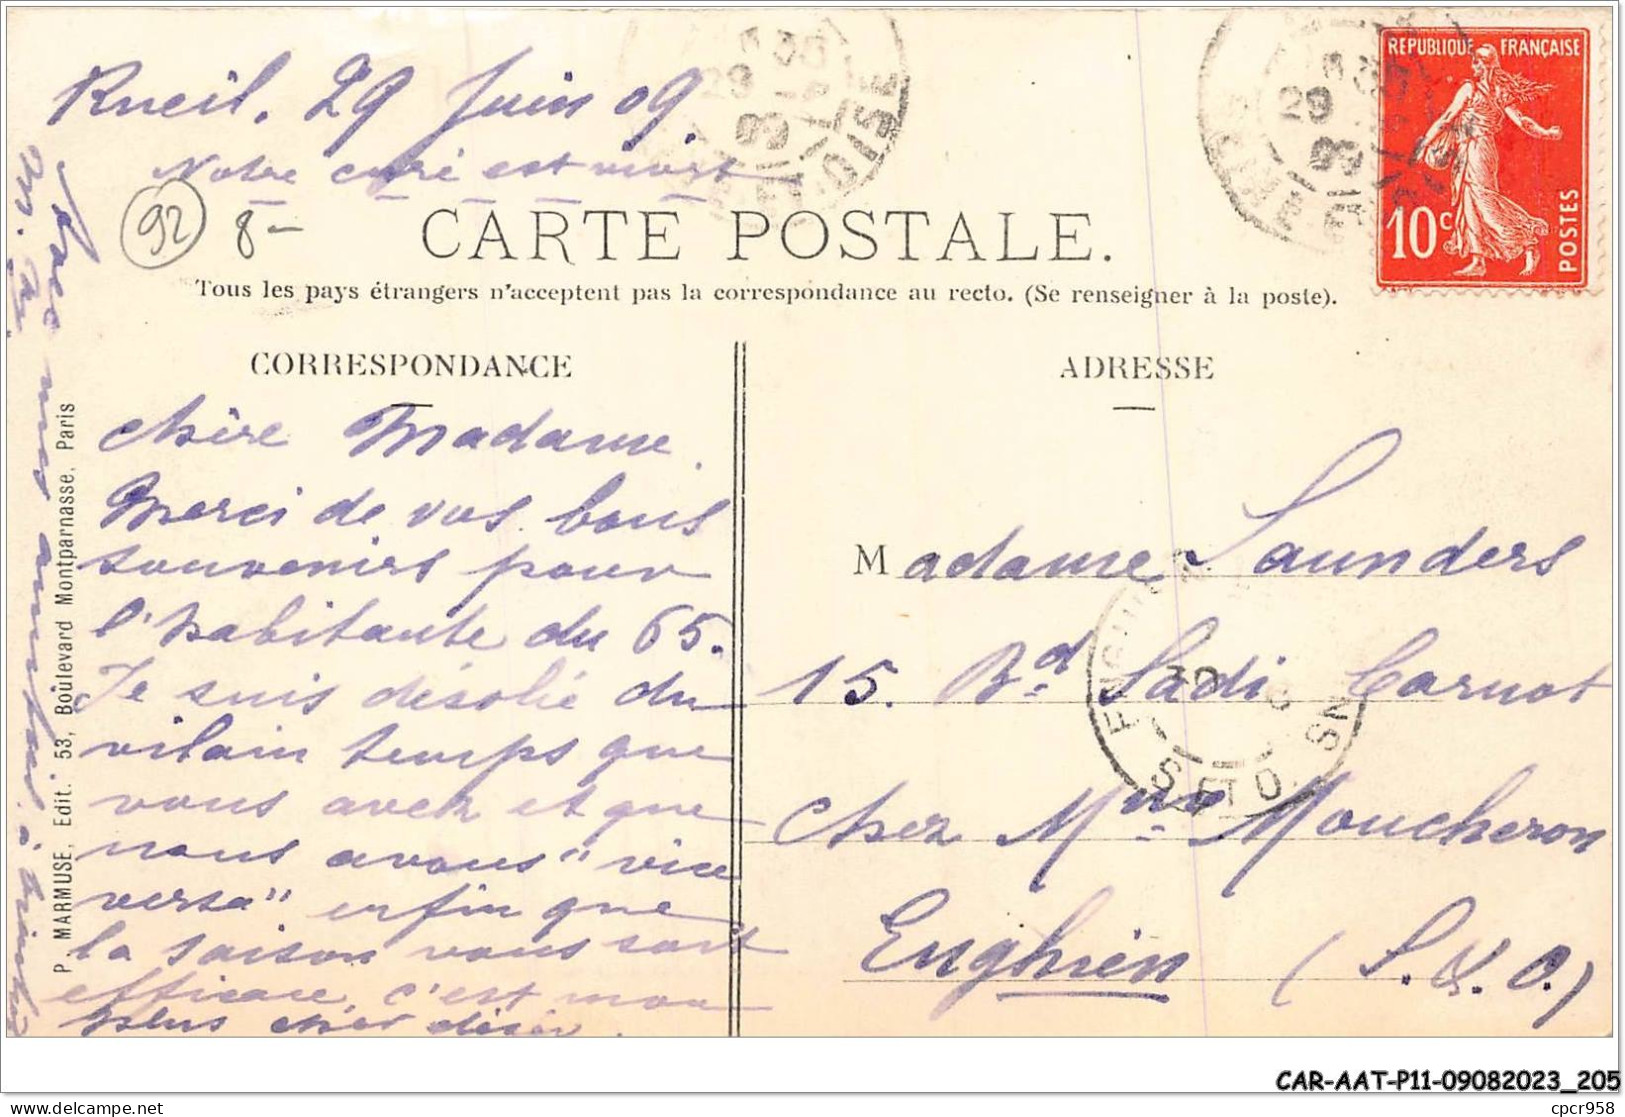 Rueil, 29 Juin 09.
Notre curé est mort
92
8-
RÉPUBLIQUE FRANÇAISE
10c
POSTES
CARTE POSTALE.
Tous les pays étrangers n'acceptent pas la correspondance au recto. (Se renseigner à la poste).
CORRESPONDANCE
ADRESSE
chère Madame.
Merci de vos bons
souvenirs pour
l'habitante du 65.
Je suis désolée du
vilain temps que
vous avez et que
nous avons "vice
versa" enfin que
la saison vous soit
efficace, c'est mon
plus cher désir.
Avec mes amitiés à
P. MARMUSE, Edit. 53, Boulevard Montparnasse, Paris
Madame Saunders
15. Bd Sadi Carnot
chez Mme Moucheron
Enghien (S.&.O.)
ENGHIEN
30
S. ET O.
CAR-AAT-P11-09082023_205
cpcr958